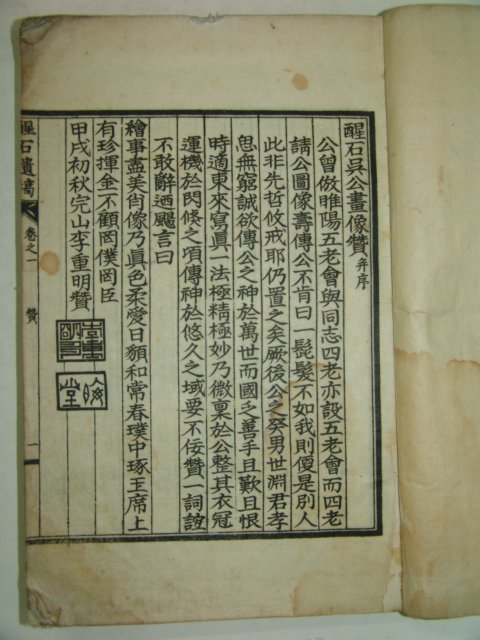 醒石吳公畫像贊 幷序
公曾倣睢陽五老會與同志四老亦設五老會而四老
請公圖像壽傳公不肯曰一髭髮不如我則便是別人
此非先哲攸戒耶仍置之矣厥後公之癸男世淵君孝
思無窮誠欲傳公之神於萬世而國乏善手且歎且恨
時適東來寫眞一法極精極妙乃微稟於公整其衣冠
運機於閃倏之頃傳神於悠久之域要不佞贊一詞誼
不敢辭迺颺言曰
繪事盡美肖像乃眞色柔愛日顏和常春璞中琢玉席上
有珍揮金不顧岡僕岡臣
甲戌初秋完山李重明贊
李重明印
晦堂
醒石遺稿 卷之一 贊 一